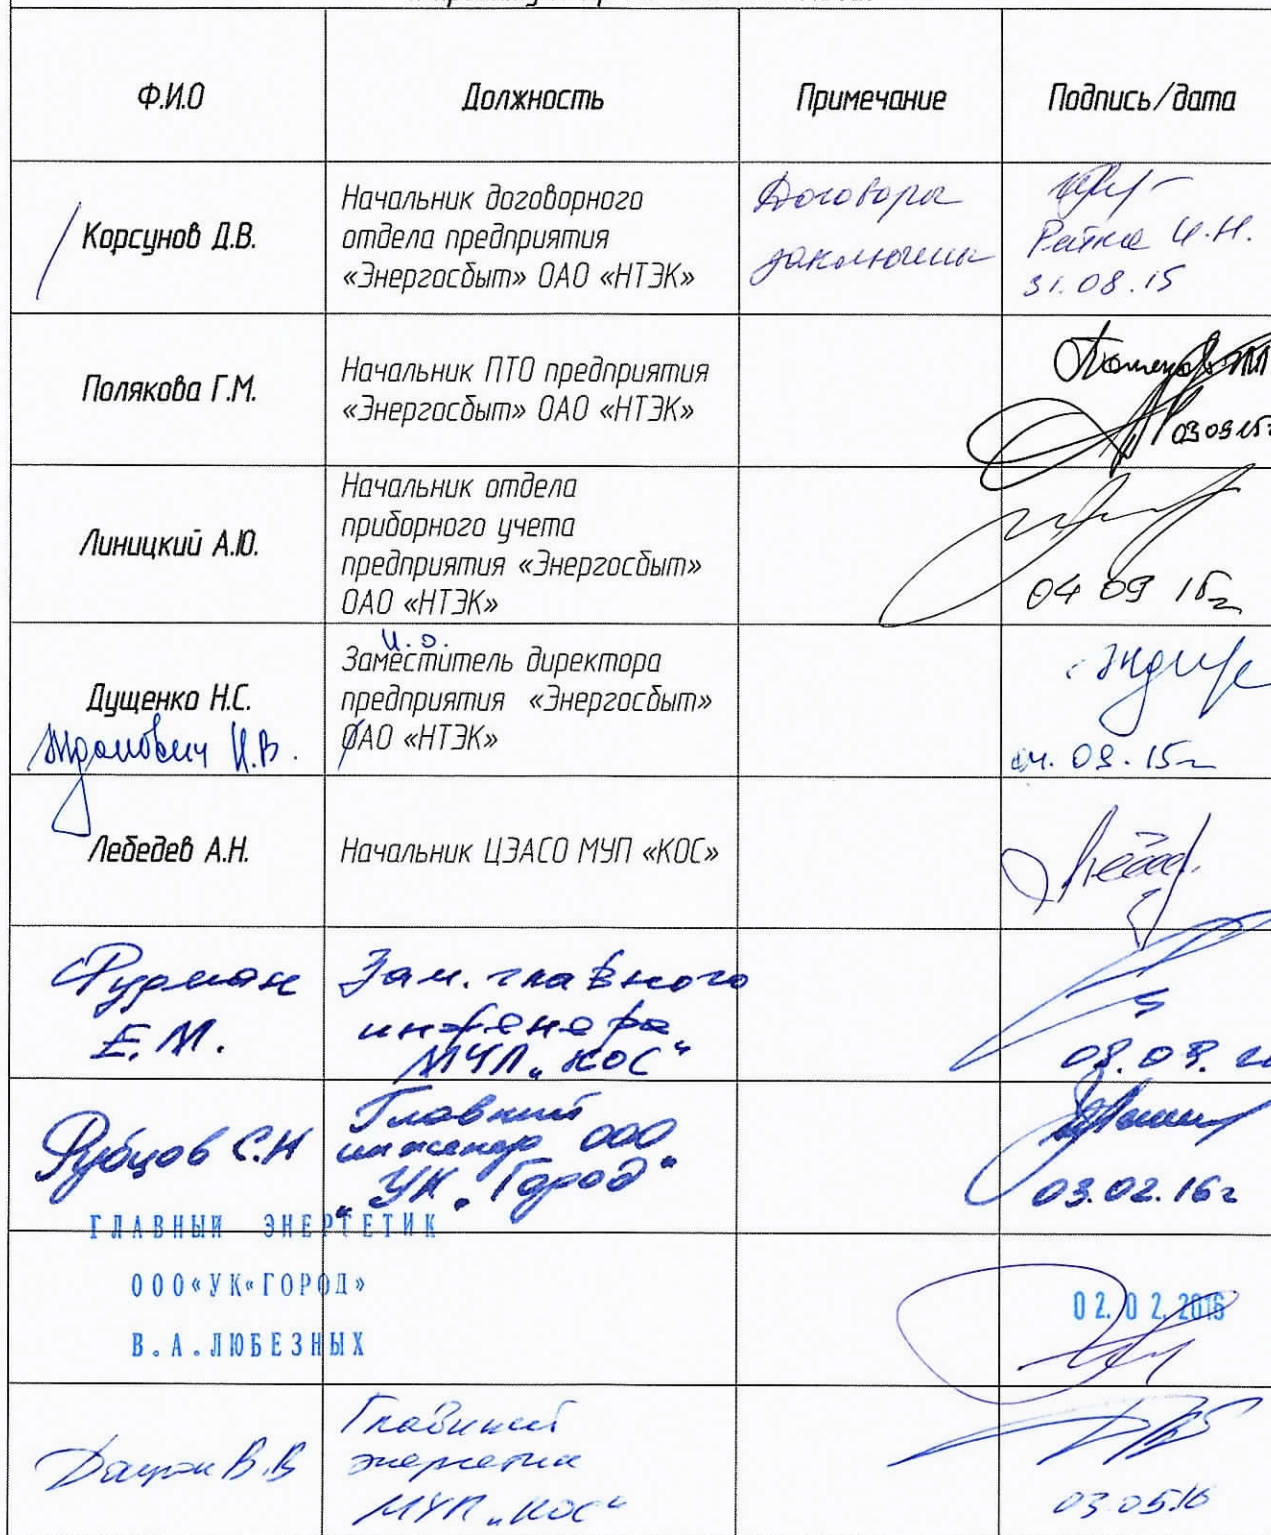 Ф.И.О
Должность
Примечание
Подпись/дата
Корсунов Д.В.
Начальник договорного
отдела предприятия
«Энергосбыт» ОАО «НТЭК»
Договора
заключены
И.Н.
31.08.15
Полякова Г.М.
Начальник ПТО предприятия
«Энергосбыт» ОАО «НТЭК»
03 09 15г
Линицкий А.Ю.
Начальник отдела
приборного учета
предприятия «Энергосбыт»
ОАО «НТЭК»
04 09 15г
Дущенко Н.С.
Жданович И.В.
И.о.
Заместитель директора
предприятия «Энергосбыт»
ОАО «НТЭК»
04.09.15г
Лебедев А.Н.
Начальник ЦЭАСО МУП «КОС»
Фурман
Е.М.
Зам. главного
инженера
МУП „КОС“
Рубцов С.Н
Главный
инженер ООО
„УК „Город“
03.02.16г
ГЛАВНЫЙ ЭНЕРГЕТИК
ООО«УК«ГОРОД»
В.А.ЛЮБЕЗНЫХ
02.02.2016
В.В
Главный
энергетик
МУП „КОС“
03.05.16